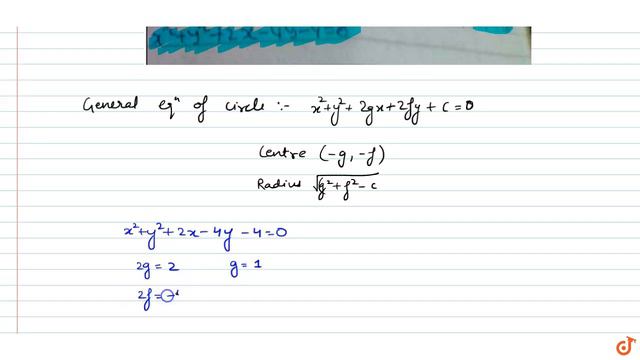 x²+y²+2x-4y-4=0
General eqⁿ of circle :- x²+y²+2gx+2fy+c=0
Centre (-g, -f)
Radius √g²+f²-c
x²+y²+2x-4y-4=0
2g = 2 g = 1
2f = -